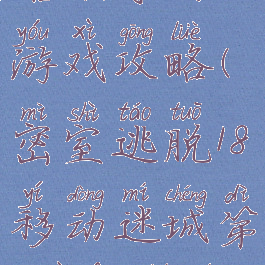 yóu xì gōng lüè
游戏攻略(
mì shì táo tuō
密室逃脱18
yí dòng mí chéng dì
移动迷城第